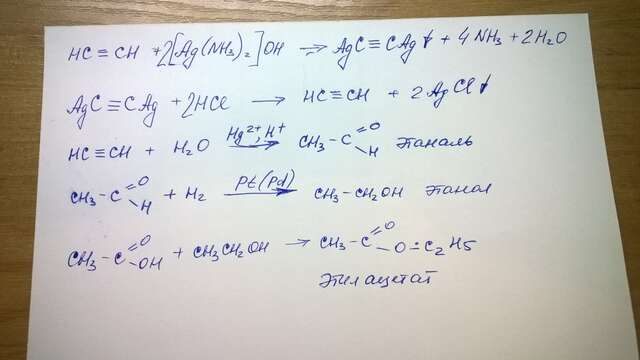 HC≡CH + 2[Ag(NH₃)₂]OH → AgC≡CAg↓ + 4NH₃ + 2H₂O
AgC≡CAg + 2HCl → HC≡CH + 2AgCl↓
HC≡CH + H₂O Hg²⁺, H⁺ → CH₃-C=O H этаналь
CH₃-C=O H + H₂ Pt(Pd) → CH₃-CH₂OH этанол
CH₃-C=O OH + CH₃CH₂OH → CH₃-C=O O-C₂H₅
этилацетат